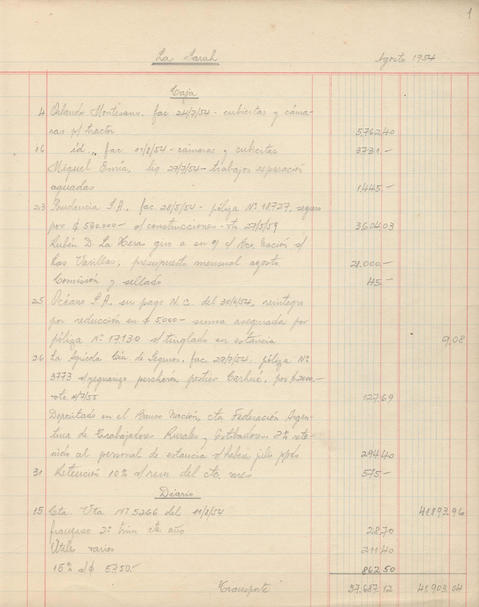 1
La Sarah Agosto 1954
Caja
4 Orlando Montesano. fac 24/7/54 - cubiertas y cáma-
ras p/ tractor 5.762,40
16 id. „ fac. 01/8/54 - cámaras y cubiertas 3731.-
Miguel liq 27/7/54 - trabajos reparación
aguadas 1.445.-
23 Prudencia S.A. fac. 28/5/54 - póliza Nº 18727, seguro
por $ 530.000- s/ construcciones - vto 27/5/59 3.604,03
Rubén D. La Heras giro a en o/ s/ Bco. Nación s/
Las Varillas, presupuesto mensual agosto 21.000.-
Comisión y sellado 45.-
25 Océano S.A. su pago N.C. del 30/6/54, reintegro
por reducción en $ 5.000- suma asegurada por
póliza Nº 17.130 s/ tinglado en estancia 9,08
26 La Agrícola Cía. de Seguros, fac. 29/7/54 póliza Nº
3773 s/ yeguarizo percherón padre Carhué, por $
vto 4/7/55 127,69
Depositado en el Banco Nación, cta Federación Argen-
tina de Trabajadores Rurales y Estibadores 2% rete-
nido al personal de estancia s/ haber julio ppdo 294,40
31 Retención 10% s/ rem. del cte. mes 575.-
Diario
15 Cta. Vta Nº 5266 del 11/8/54 41.893,96
franqueo 2º trim cte año 28,70
Útiles varios 211,40
15% s/ $ 5750.- 862,50
Transporte 37.687,12 41.903,04